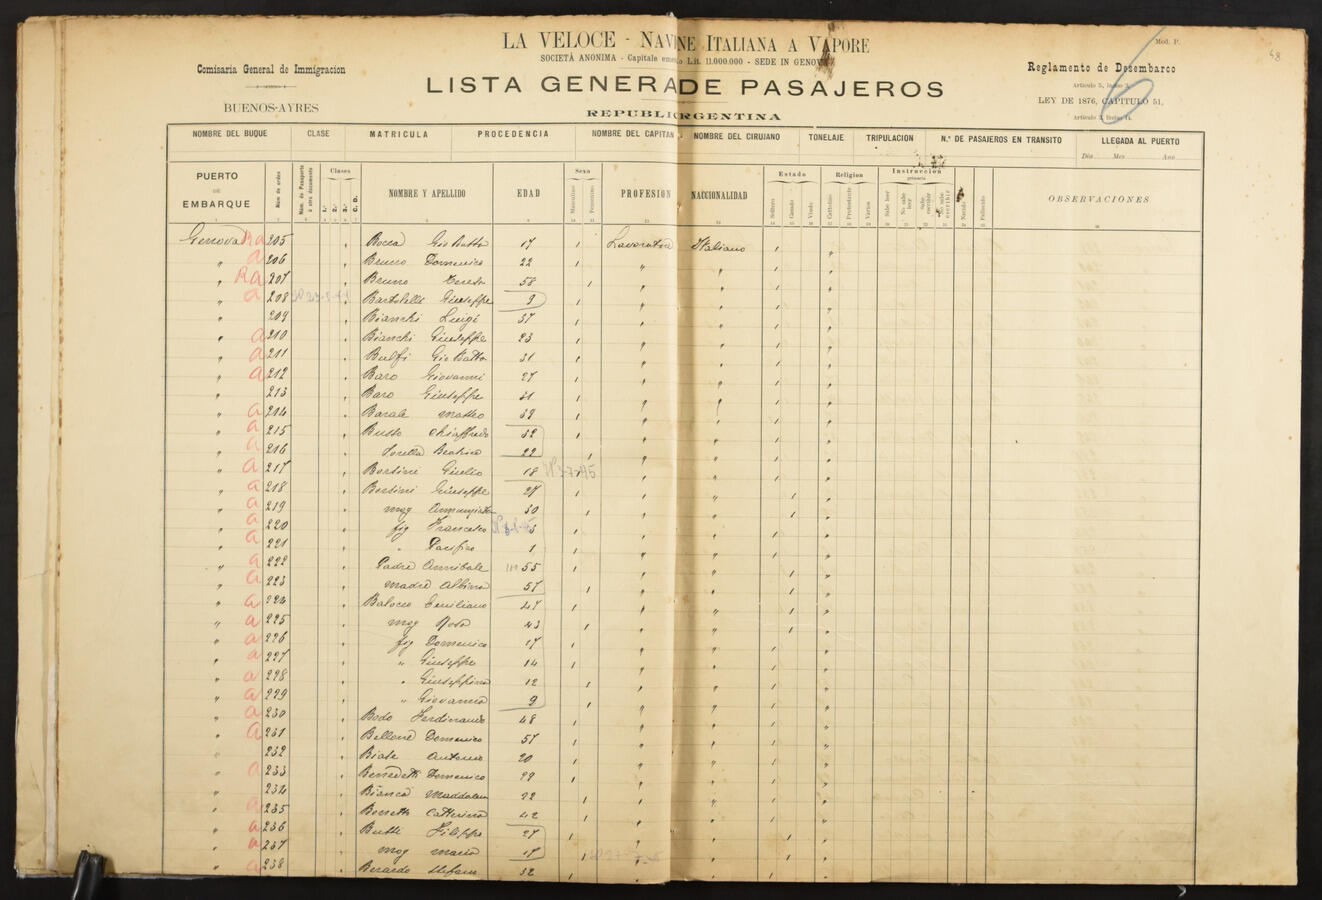 LA VELOCE - NAV NE ITALIANA A VAPORE
Mod. P.
48
SOCIETÀ ANONIMA - Capitale Lit. 11.000.000 - SEDE IN GENOVA
Comisaria General de Immigracion
BUENOS-AYRES
LISTA GENERA DE PASAJEROS
REPUBLI RGENTINA
Reglamento de Desembarco
LEY DE 1876, CAPITULO 51,
NOMBRE DEL BUQUE CLASE MATRICULA PROCEDENCIA NOMBRE DEL CAPITAN NOMBRE DEL CIRUJANO TONELAJE TRIPULACION N.º DE PASAJEROS EN TRANSITO LLEGADA AL PUERTO
Dia Mes Ano
PUERTO DE EMBARQUE Núm de orden Núm. de Pasaporte ú otro documento Clases 1.ª 2.ª 3.ª C. D. NOMBRE Y APELLIDO EDAD Sexo Masculino Femenino PROFESION NACCIONALIDAD Estado Soltero Casado Viudo Religion Cattolico Protestante Varios Instruccion primaria Sabe leer No sabe leer Sabe escribir No sabe escribir Nacido Fallecido OBSERVACIONES
Genova Ra 205 Rocca Gio Batta 17 Lavoratore Italiano
" a 206 Bruno Domenico 22 " "
" Ra 207 Bruno 58 " "
" a 208 Giuseppe 9 " "
" 209 Bianchi Luigi 37 " "
" a 210 Bianchi Giuseppe 23 " "
" a 211 Gio Batta 31 " "
" a 212 Baro Giovanni 27 " "
" 213 Baro Giuseppe 31 " "
" a 214 Barale Matteo 39 " "
" a 215 Busto Chiaffredo 32 " "
" a 216 Sorella Beatrice 22 " "
" a 217 Borsini Giulio 18 " "
" a 218 Borsini Giuseppe 27 " "
" a 219 mog Annunziata 30 " "
" a 220 fig Francesco 3 " "
" a 221 " Pacifico 1 " "
" a 222 Padre Annibale 55 " "
" a 223 madre Albina 57 " "
" a 224 Balocco Emiliano 47 " "
" a 225 mog Rosa 43 " "
" a 226 fig Domenico 17 " "
" a 227 " Giuseppe 14 " "
" a 228 " Giuseppina 12 " "
" a 229 " Giovanna 9 " "
" a 230 Bodo Ferdinando 48 " "
" a 231 Bellone Domenico 57 " "
" 232 Antonio 20 " "
" a 233 Benedetti Domenico 29 " "
" 234 Bianca Maddalena 22 " "
" a 235 Catterina 42 " "
" a 236 Filippo 27 " "
" a 237 mog Maria 18 " "
" a 238 Berardo Stefano 32 " "